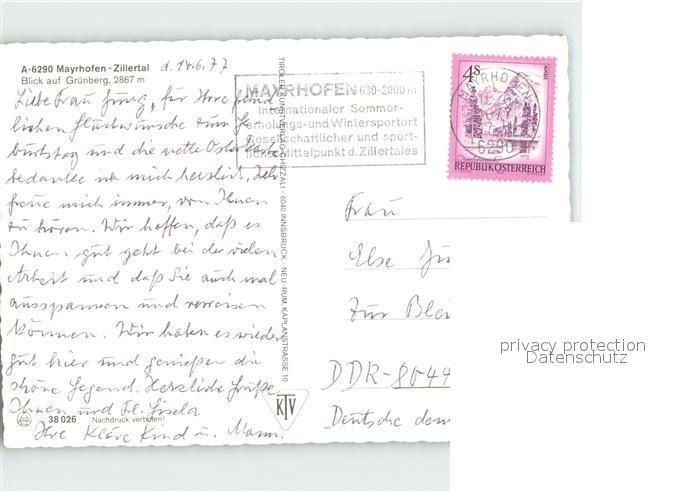 A-6290 Mayrhofen - Zillertal
Blick auf Grünberg, 2867 m
d. 14.6.77
Liebe Frau Jung, für Ihre freund
lichen Glückwünsche zum Ge
burtstag und die nette Osterkarte
bedanke ich mich herzlich. Ich
freue mich immer, von Ihnen
zu hören. Wir hoffen, daß es
Ihnen gut geht bei der vielen
Arbeit und daß Sie auch mal
ausspannen und verreisen
können. Wir haben es wieder
gut hier und genießen die
schöne Gegend. Herzliche Grüße
Ihnen und Frl. Gisela
Ihre Kläre Kind u. Mann.
38 026 Nachdruck verboten!
TIROLER KUNSTVERLAG CHIZZALI · 6040 INNSBRUCK · NEU-RUM, KAPLANSTRASSE 10
KTV
MAYRHOFEN 630-2000 m
Internationaler Sommer-
erholungs- und Wintersportort
Gesellschaftlicher und sport-
licher Mittelpunkt d. Zillertales
4 S
MAYRHOFEN
6290
REPUBLIK ÖSTERREICH
Frau
Else
Zur
DDR-8044
Deutsche dem
privacy protection
Datenschutz